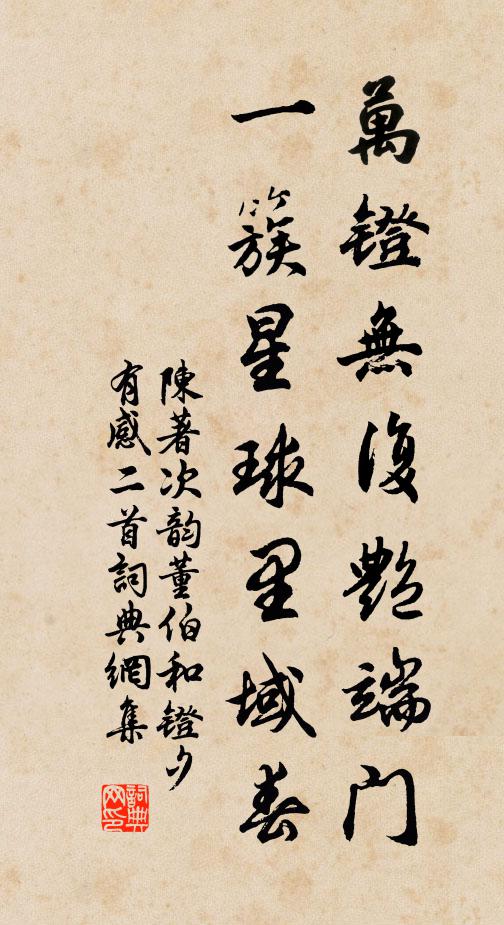 萬鐙無復艷端門
一簇星球里域春
陳著次韵董伯和鐙夕
有感二首詞典網集
詞典网印